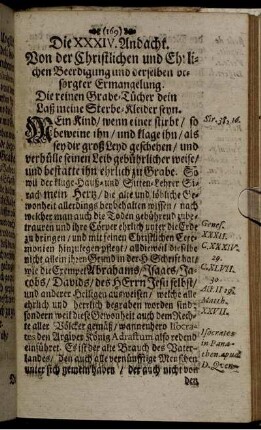 (169)
Die XXXIV. Andacht.
Von der Christlichen und Ehrli-
chen Beerdigung und derselben be-
sorgter Ermangelung.
Die reinen Grabe-Tücher dein
Laß meine Sterbe-Kleider seyn.
MEin Kind/ wenn einer stirbt/ so
beweine ihn/ und klage ihn/ als
sey dir groß Leyd geschehen/ und
verhülle seinen Leib gebührlicher weise/
und bestatte ihn ehrlich zu Grabe. So
wil der kluge Hauß- und Sitten-Lehrer Si-
rach mein Hertz/ die alte und löbliche Ge-
wonheit allerdings beybehalten wissen/ nach
welcher man auch die Todten gebührend zube-
trauren und ihre Cörper ehrlich unter die Erde
zu bringen/ und mit seinen Christlichen Cere-
monien hinzulegen pflegt/ alldieweil dieselbe
nicht allein ihren Grund in der H. Schrifft hat/
wie die Exempel Abrahams/ Isaacs/ Ja-
cobs/ Davids/ des HErrn JEsu selbst/
und anderer Heiligen ausweisen/ welche alle
ehrlich und herrlich begraben worden sind/
sondern weil diese Gewonheit auch dem Rech-
te aller Völcker gemäß/ wannenhero Isocra-
tes den Argiver König Adrastum also redend
einführet. Es ist der alte Brauch des Vater-
landes/ den auch alle vernünfftige Menschen
unter sich gemein haben/ der auch nicht von
den
Sir. 38, 16.
Genes.
XXIII.
C. XXXIV.
29.
C. XLVII.
30.
Act. II 29.
Matth.
XXVII.
Isocrates
in Pana-
then. apud